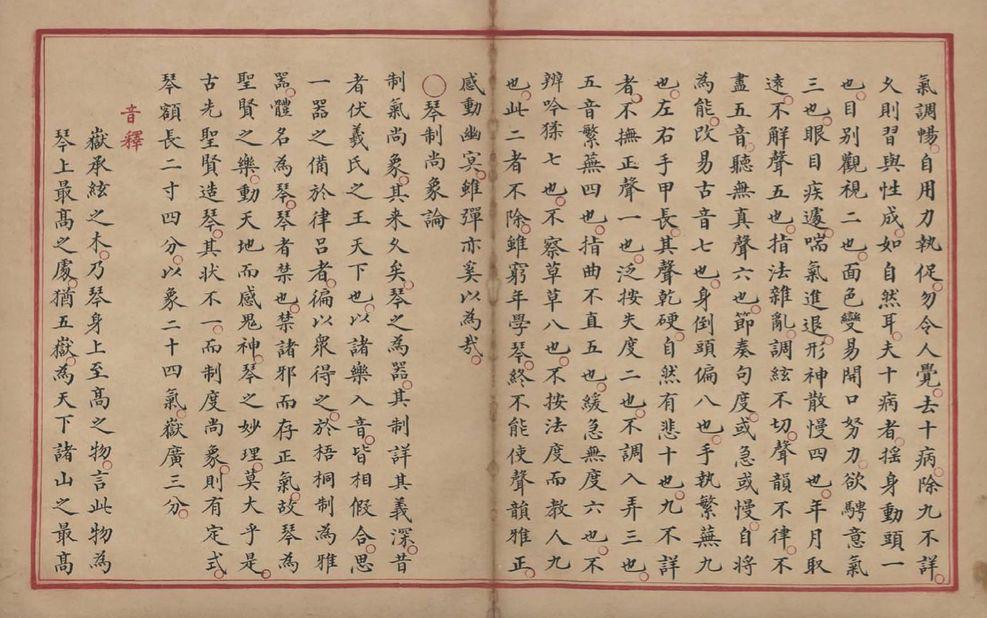 氣調暢。自用力執促。勿令人覺。去十病。除九不詳。
久則習與性成。如自然耳。夫十病者。搖身動頭一
也。目别觀視二也。面色變易開口努力。欲騁意氣
三也。眼目疾遽。喘氣進退。形神散慢四也。年月取
遠。不解聲五也。指法雜亂。調絃不切。聲韻不律。不
盡五音。聽無真聲六也。節奏句度。或急或慢。自將
為能。改易古音七也。身倒頭偏八也。手執繁蕪九
也。左右手甲長。其聲乾硬。自然有悲十也。九不詳
者。不撫正聲一也。泛按失度二也。不調入弄三也。
五音繁蕪四也。指曲不直五也。緩急無度六也。不
辨吟猱七也。不察草草八也。不按法度而教人九
也。此二者不除。雖窮年學琴。終不能使聲韻雅正。
感動幽冥。雖彈亦奚以為哉。
○琴制尚象論
制氣尚象。其来久矣。琴之為器。其制詳其義深。昔
者伏羲氏之王天下也。以諸樂入音。皆相假合。思
一器之備於律呂者。徧以衆得之。於梧桐制為雅
噐。軆名為琴。琴者禁也。禁諸邪而存正氣。故琴為
聖賢之樂。動天地而感鬼神。琴之妙理。莫大乎是。
古先聖賢造琴。其状不一。而制度尚象。則有定式。
琴額長二寸四分。以象二十四氣。嶽廣三分。
音釋
嶽承絃之木。乃琴身上至髙之物。言此物為
琴上最髙之處。猶五嶽。為天下諸山之最髙